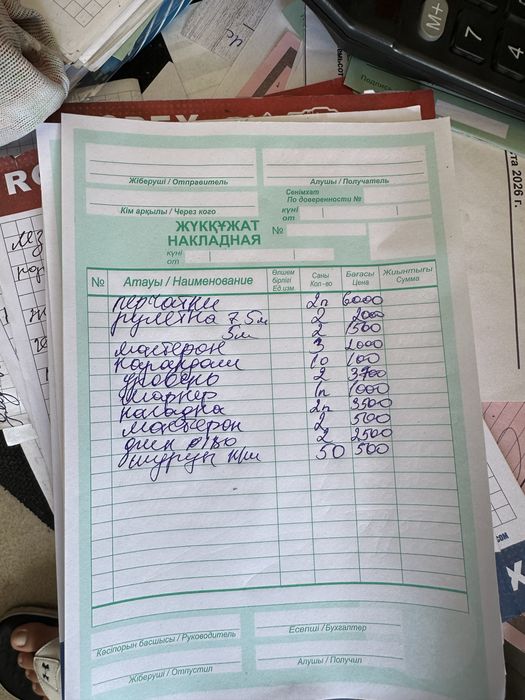 M+
7
4
Подпись
та 2026 г.
Жіберуші / Отправитель
Алушы / Получатель
Кім арқылы / Через кого
Сенімхат
По доверенности №
күні
от
ЖҮКҚҰЖАТ
НАКЛАДНАЯ
№
күні
от
№ Атауы / Наименование Өлшем бірлігі Ед.изм. Саны Кол-во Бағасы Цена Жиынтығы Сумма
перчатки 2п 6000
рулетка 7.5м 2 2000
5м 2 1500
мастерок 3 2000
карандаш 10 100
уровень 2 3700
маркер 1п 1000
насадка 2п 3500
мастерок 2 500
диск 2 2500
шуруп 50 500
Кәсіпорын басшысы / Руководитель
Есепші / Бухгалтер
Жіберуші / Отпустил
Алушы / Получил